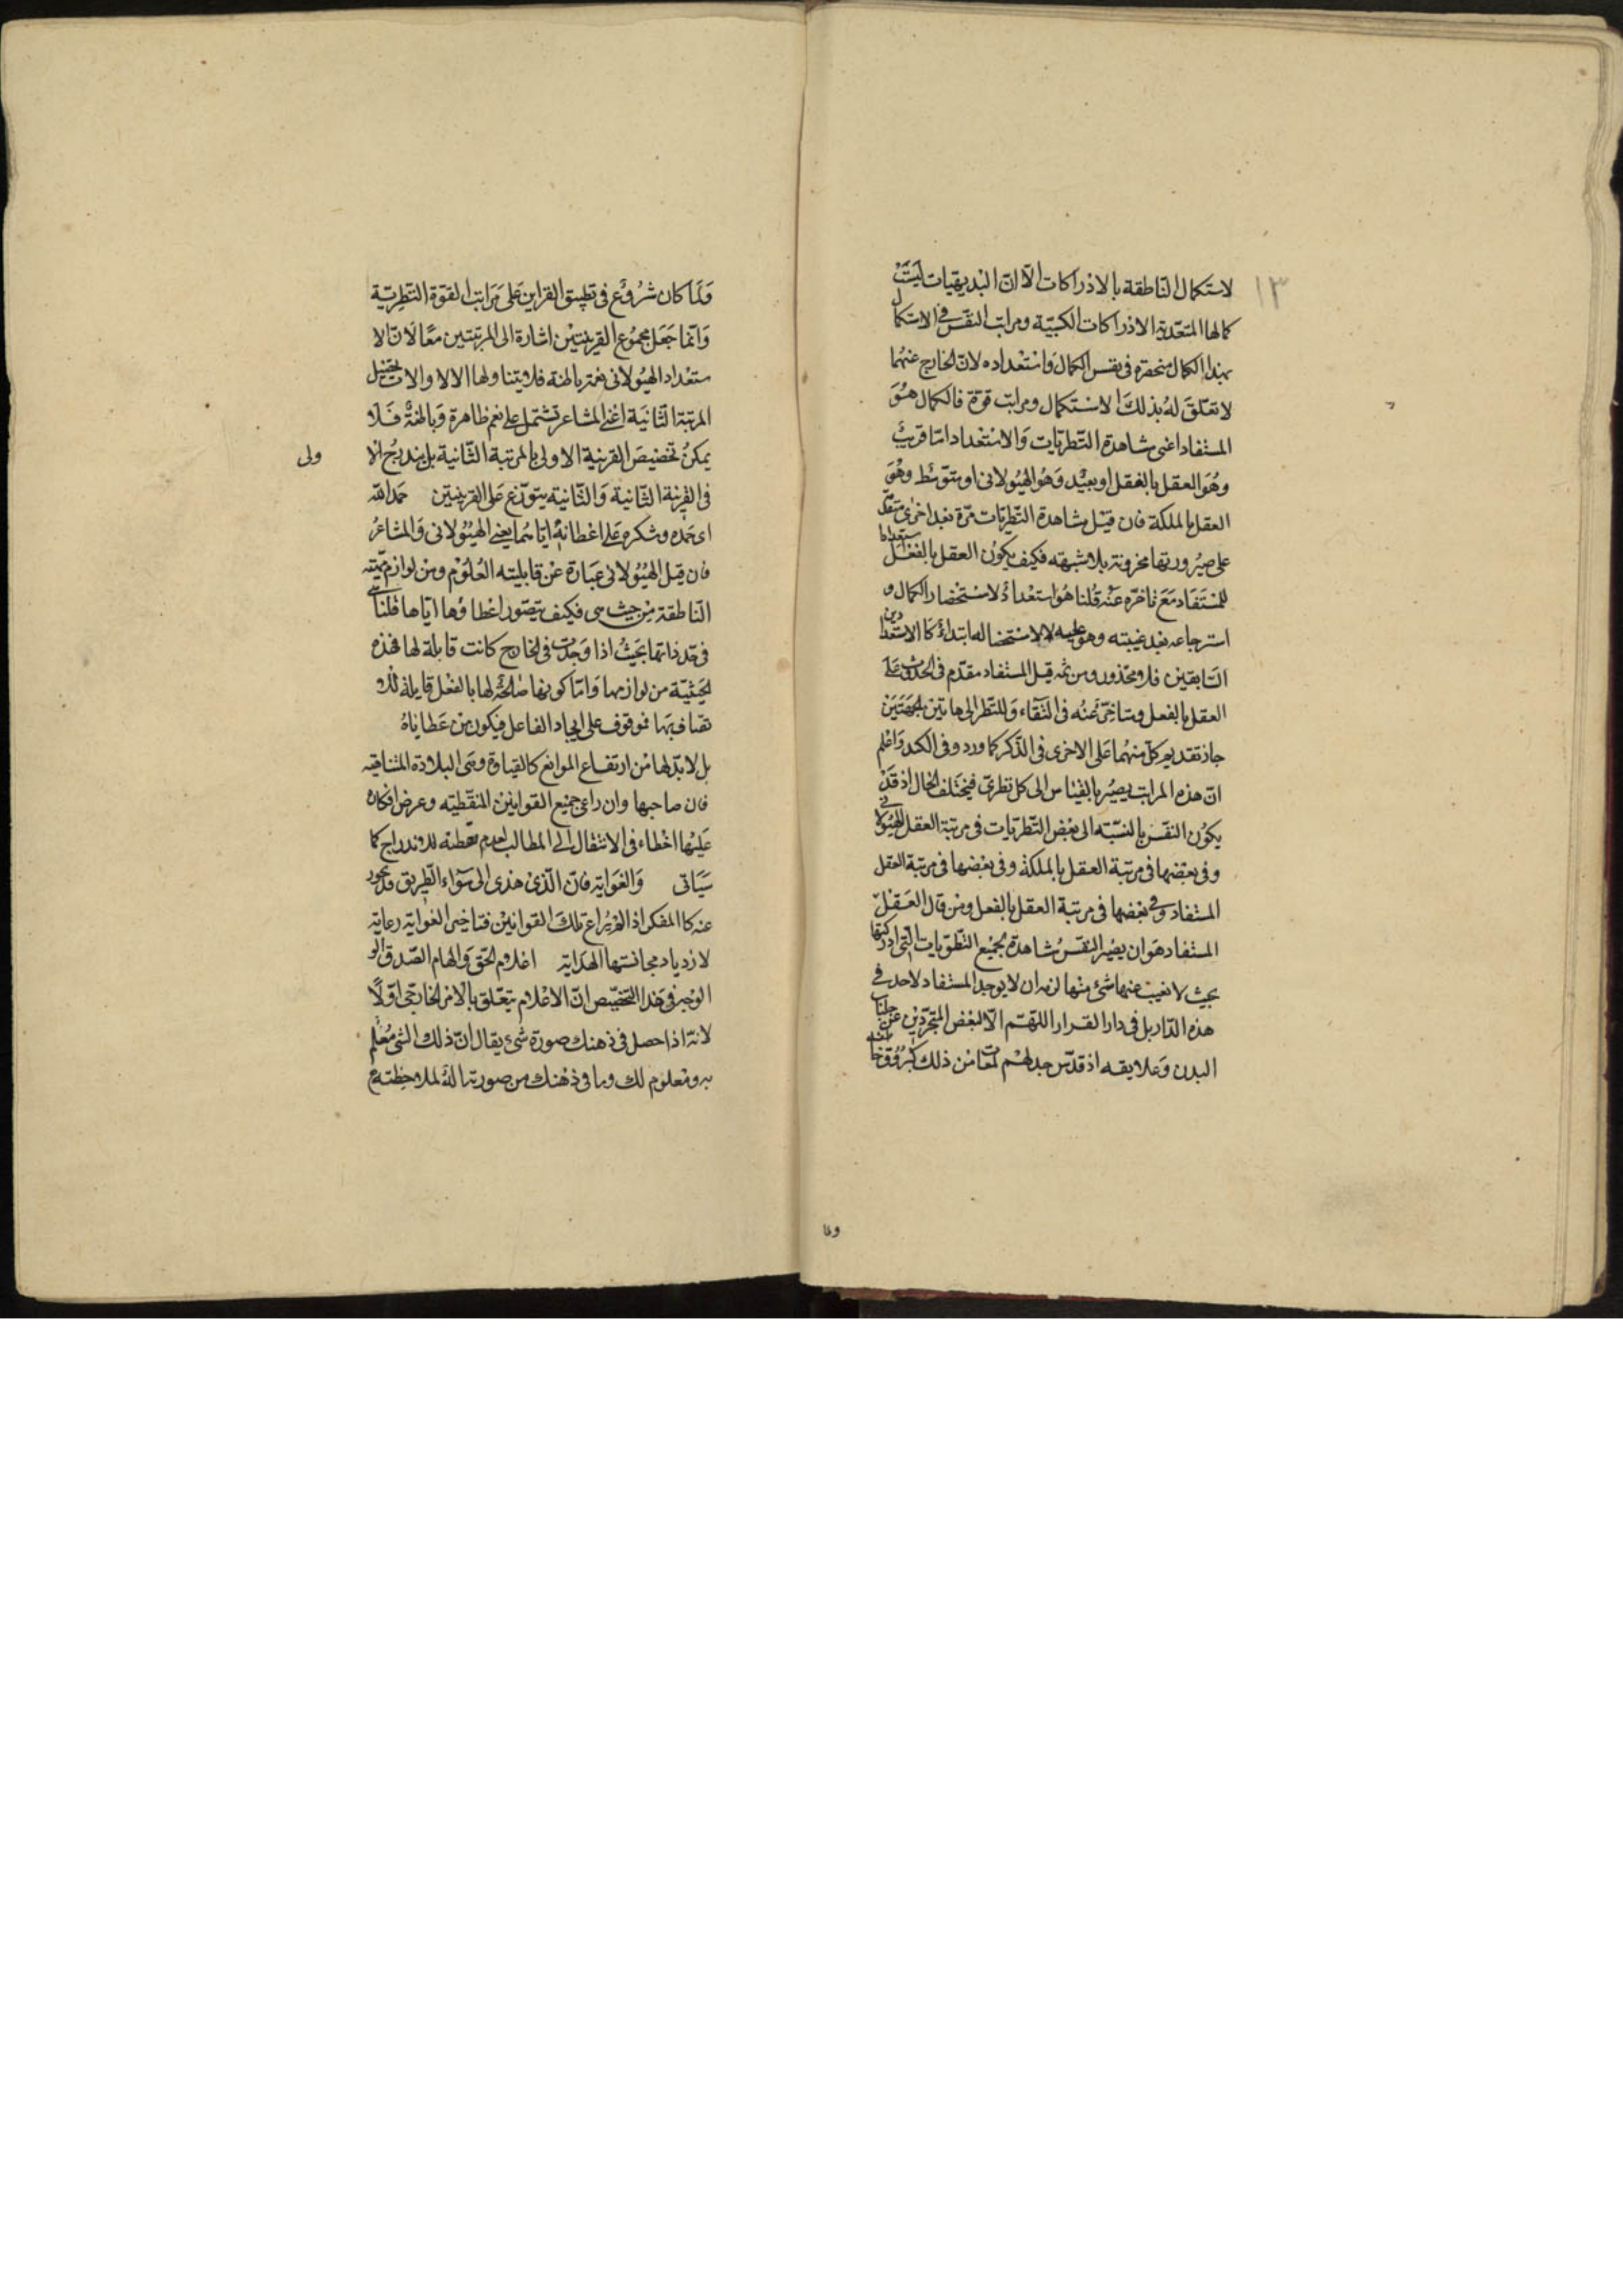 ١٣
لاستكمال الناطقة بالادراكات الا ان البديهيات ليست
كمالها المتعدبه الادراكات الكسبية ومراتب النفس في الاستكمال
بهذا الكمال منحصرة في نفس الكمال واستعداده لان الخارج عنهما
لا تعلق له بذلك الاستكمال ومراتب قوة فالكمال هو
المستفاد اعنى مشاهدة النظريات والاستعداد اما قريب
وهو العقل بالفعل او بعيد وهو الهيولانى او متوسط وهو
العقل بالملكة فان قيل مشاهدة النظريات مرة بعد اخرى متقدم
على صيرورتها مخزونة بلا شبهه فكيف يكون العقل بالفعل استعدادا
للمستفاد مع تاخره عنه قلنا هو استعداد لاستحضار الكمال و
استرجاعه بعد غيبته وهو عليه لا لاستحضاله ابتداء كالاستعدادين
السابقين فلا محذور ومن ثمه قيل المستفاد مقدم فى الحدوث على
العقل بالفعل ومتاخر عنه فى البقاء وللنظر الى هاتين الجهتين
جاز تقديم كل منهما على الاخرى فى الذكر كما ورد وفى الكد واعلم
ان هذه المراتب يصير بالقياس الى كل نظرى فيختلف الحال اذ قد
يكون النفس بالنسبة الى بعض النظريات فى مرتبة العقل الهيولانى
وفى بعضها فى مرتبة العقل بالملكة وفى بعضها فى مرتبة العقل
المستفاد وفى بعضها فى مرتبة العقل بالفعل ومن قال العقل
المستفاد هو ان يصير النفس مشاهدة لجميع النظريات التى ادركتها
بحيث لا تغيب عنها شئ منها لزمه ان لا يوجد المستفاد لاحد فى
هذه الدار بل فى دار القرار اللهم الا لبعض المتجردين عن جلباب
البدن وعلايقه اذ قد لهم من ذلك كبروق خاطفة
وما
ولما كان شروع فى تطبيق القراين على مراتب القوة النظرية
وانما جعل مجموع القرينتين اشارة الى المرتبتين معا لان الا
ستعداد الهيولانى نعمة باطنة فلا يتناولها الالا والات تحصيل
المرتبة الثانية اعنى المشاعر تشتمل على نعم ظاهرة وباطنة فلا
يمكن تخصيص القرينة الاولى بالمرتبة الثانية بل يندرج الا
ولى
فى القرينة الثانية والثانية يتوزع على القرينتين حمد الله
اى حمده وشكره على اعطائه اياهما يعنى الهيولانى والمشاعر
فان قيل الهيولانى عبارة عن قابليته العلوم ومن لوازم مهيته
الناطقة من حيث هى فكيف يتصور اعطاؤها اياها قلنا هى
فى حد ذاتها بحيث اذا وجدت فى الخارج كانت قابلة لها فهذه
الحيثية من لوازمها واما كونها صالحة لها بالفعل قابلة للا
تصاف بها فموقوف على ايجاد الفاعل فيكون من عطاياه
بل لابد لها من ارتفاع الموانع كالغباوة وهى البلادة المتناهية
فان صاحبها وان راعى جميع القوانين المنطقيته وعرض افكاره
عليها اخطاء فى الانتقال الى المطالب لعدم تفطنه للاندراج كما
سياتى والغواية فان الذى هدى الى سواء الطريق قد يجور
عنه كالمفكر اذا لم يراع تلك القوانين فتاخير الغواية رعاية
لازدياد مجانستها الهداية اعلام الحق والهام الصدق الو
الوجه فى هذا التخصيص ان الاعلام يتعلق بالامر الخارجى اولا
لانه اذا حصل فى ذهنك صورة شئ يقال ان ذلك الشئ معلم
به ومعلوم لك وما فى ذهنك من صورته الة لملاحظته